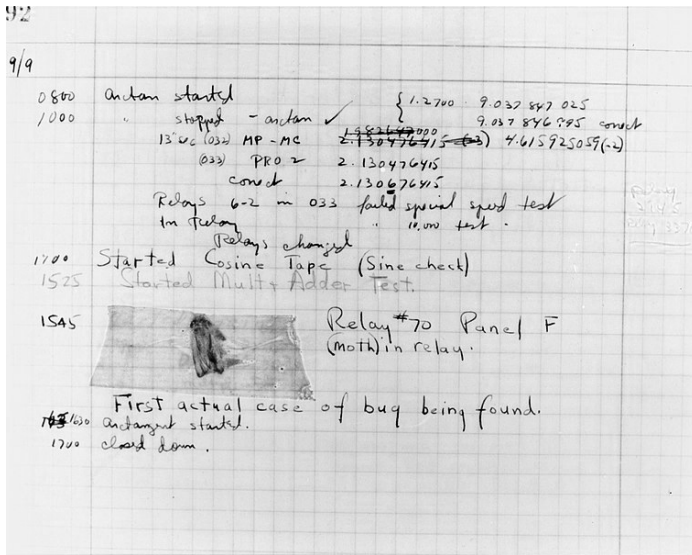 92
9/9
0800 arctan started { 1.2700 9.037 847 025
1000 " stopped - arctan ✓ 9.037 846 995 correct
1.982647000
13"uc (032) MP - MC 2.130476415 (-3) 4.615925059(-2)
(033) PRO 2 2.130476415
correct 2.130676415
Relays 6-2 in 033 failed special speed test
In Relay " 10,000 test .
Relays changed
1700 Started Cosine Tape (Sine check)
1525 Started Mult + Adder Test.
1545 Relay #70 Panel F
(moth) in relay.
First actual case of bug being found.
1630 arctangent started.
1700 closed down.
Relay
2145
Relay 337